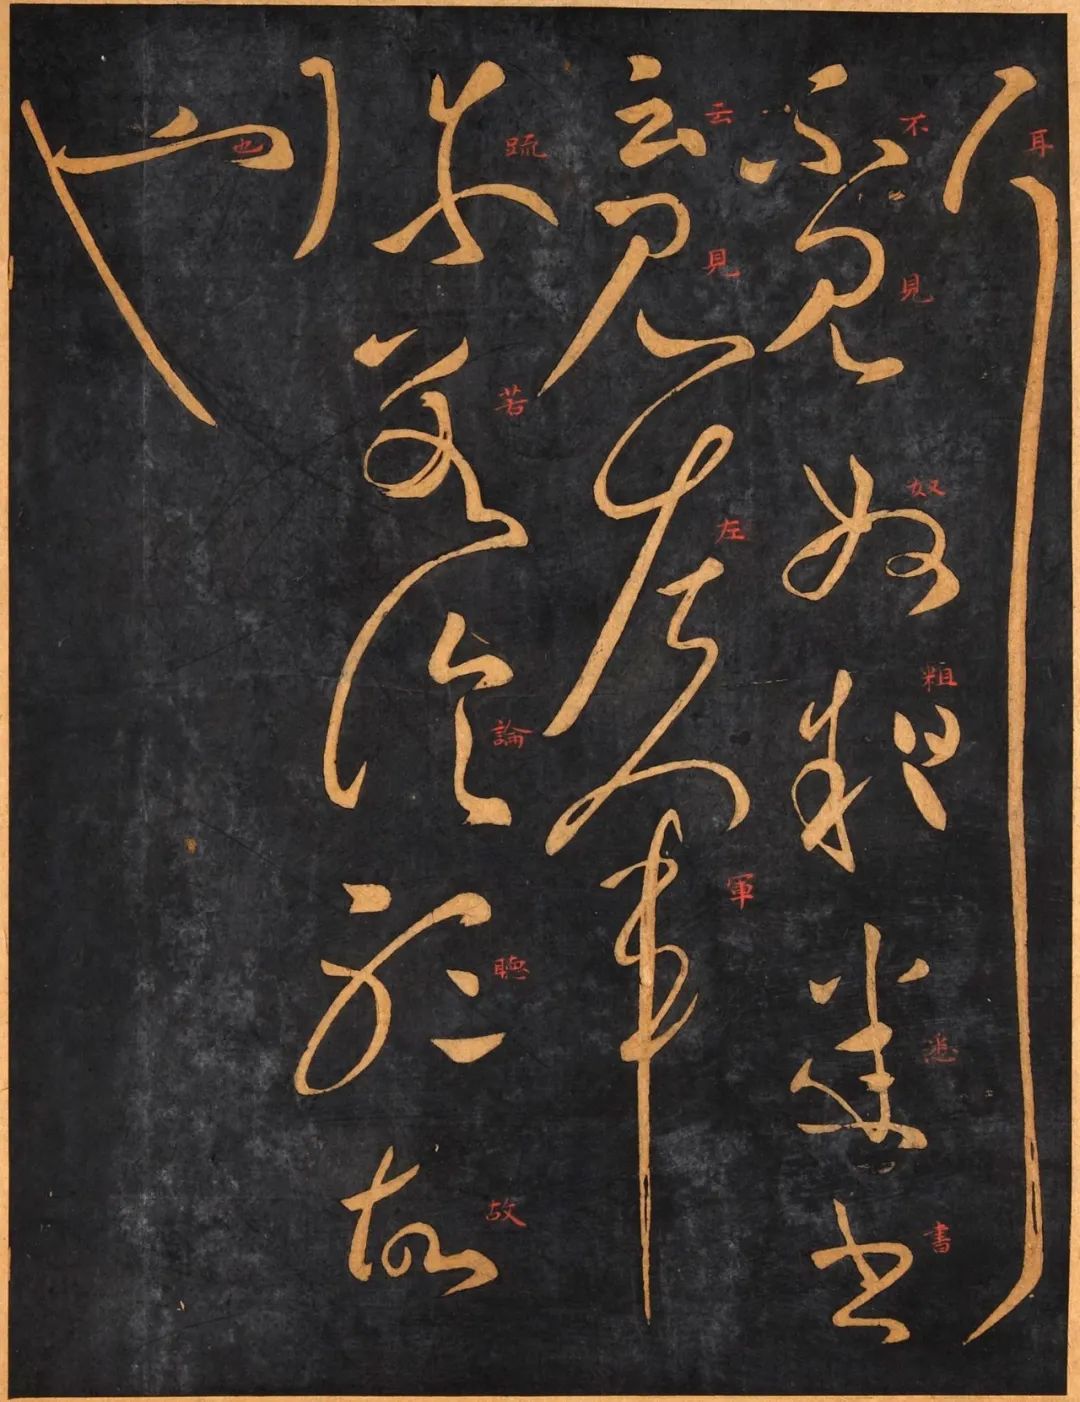 耳
不見奴粗悉書
云見左軍
疏若論聽故
也